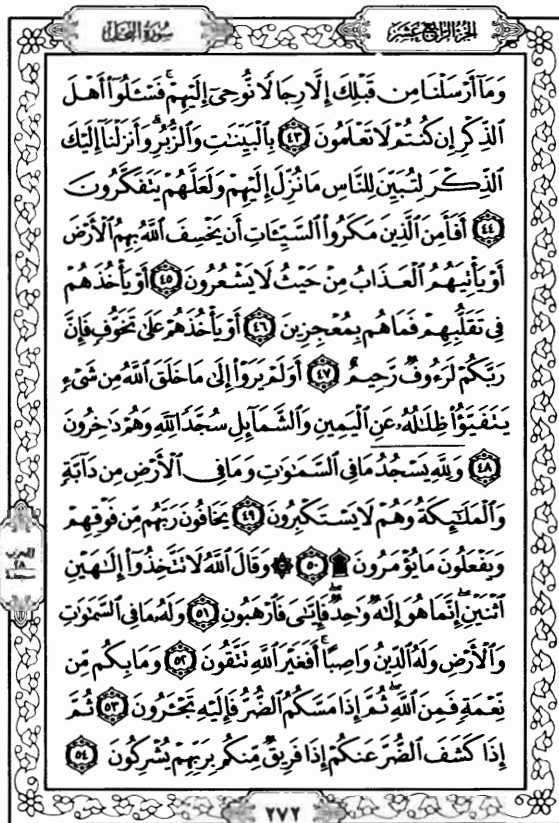 الجزء الرابع عشر
سورة النحل
وَمَآ أَرْسَلْنَا مِن قَبْلِكَ إِلَّا رِجَالًا نُّوحِىٓ إِلَيْهِمْ ۚ فَسْـَٔلُوٓا۟ أَهْلَ
ٱلذِّكْرِ إِن كُنتُمْ لَا تَعْلَمُونَ ٤٣ بِٱلْبَيِّنَـٰتِ وَٱلزُّبُرِ ۗ وَأَنزَلْنَآ إِلَيْكَ
ٱلذِّكْرَ لِتُبَيِّنَ لِلنَّاسِ مَا نُزِّلَ إِلَيْهِمْ وَلَعَلَّهُمْ يَتَفَكَّرُونَ
٤٤ أَفَأَمِنَ ٱلَّذِينَ مَكَرُوا۟ ٱلسَّيِّـَٔاتِ أَن يَخْسِفَ ٱللَّهُ بِهِمُ ٱلْأَرْضَ
أَوْ يَأْتِيَهُمُ ٱلْعَذَابُ مِنْ حَيْثُ لَا يَشْعُرُونَ ٤٥ أَوْ يَأْخُذَهُمْ
فِى تَقَلُّبِهِمْ فَمَا هُم بِمُعْجِزِينَ ٤٦ أَوْ يَأْخُذَهُمْ عَلَىٰ تَخَوُّفٍ فَإِنَّ
رَبَّكُمْ لَرَءُوفٌ رَّحِيمٌ ٤٧ أَوَلَمْ يَرَوْا۟ إِلَىٰ مَا خَلَقَ ٱللَّهُ مِن شَىْءٍ
يَتَفَيَّؤُا۟ ظِلَـٰلُهُۥ عَنِ ٱلْيَمِينِ وَٱلشَّمَآئِلِ سُجَّدًا لِّلَّهِ وَهُمْ دَٰخِرُونَ
٤٨ وَلِلَّهِ يَسْجُدُ مَا فِى ٱلسَّمَـٰوَٰتِ وَمَا فِى ٱلْأَرْضِ مِن دَآبَّةٍ
وَٱلْمَلَـٰٓئِكَةُ وَهُمْ لَا يَسْتَكْبِرُونَ ٤٩ يَخَافُونَ رَبَّهُم مِّن فَوْقِهِمْ
وَيَفْعَلُونَ مَا يُؤْمَرُونَ ۩ ٥٠ ۞ وَقَالَ ٱللَّهُ لَا تَتَّخِذُوٓا۟ إِلَـٰهَيْنِ
ٱثْنَيْنِ ۖ إِنَّمَا هُوَ إِلَـٰهٌ وَٰحِدٌ ۖ فَإِيَّـٰىَ فَٱرْهَبُونِ ٥١ وَلَهُۥ مَا فِى ٱلسَّمَـٰوَٰتِ
وَٱلْأَرْضِ وَلَهُ ٱلدِّينُ وَاصِبًا ۚ أَفَغَيْرَ ٱللَّهِ تَتَّقُونَ ٥٢ وَمَا بِكُم مِّن
نِّعْمَةٍ فَمِنَ ٱللَّهِ ۖ ثُمَّ إِذَا مَسَّكُمُ ٱلضُّرُّ فَإِلَيْهِ تَجْـَٔرُونَ ٥٣ ثُمَّ
إِذَا كَشَفَ ٱلضُّرَّ عَنكُمْ إِذَا فَرِيقٌ مِّنكُم بِرَبِّهِمْ يُشْرِكُونَ ٥٤
الحزب
٢٨
سجدة
٢٧٢